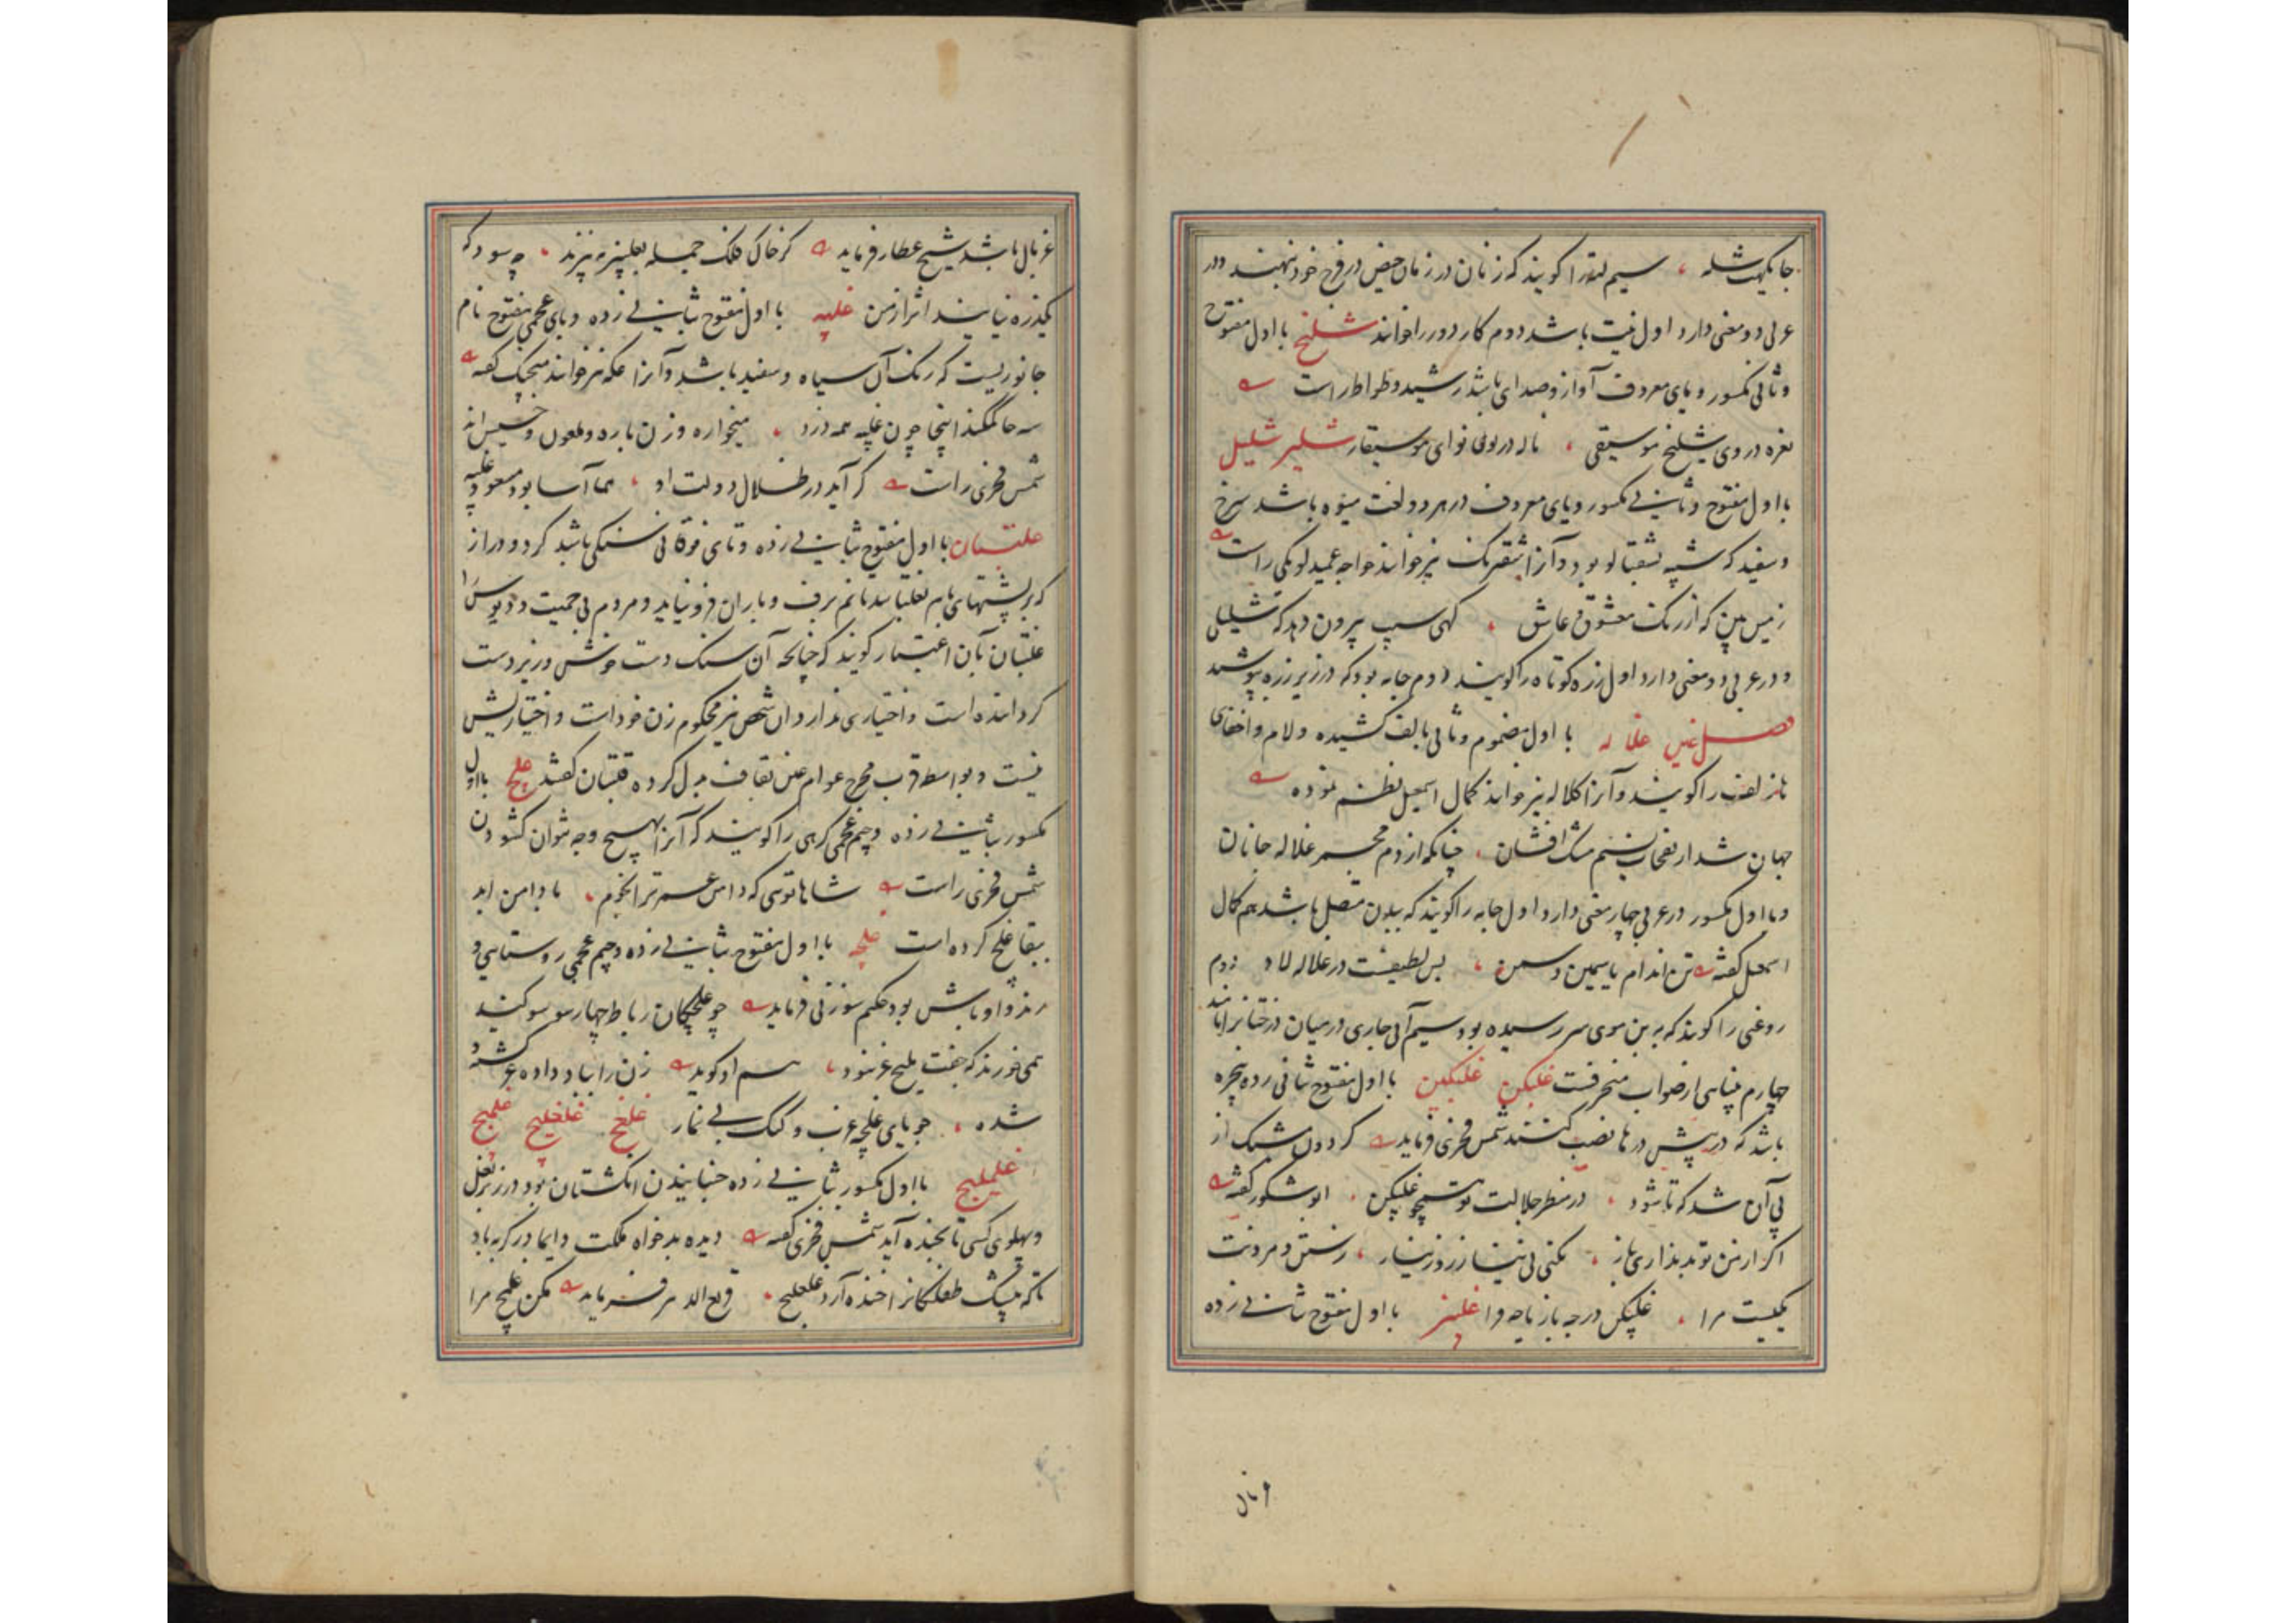 جایگهت شله ، سیم لته را کویند که زنان در زمان حیض در فرج خود نهند و در
عربی دو معنی دارد اول نیت باشد دوم کار دور را خوانند شلیخ با اول مفتوح
و ثانی مکسور و یای معروف آواز و صدای باشد رشید وطواط راست
نعره در وی شلیخ موسیقی ، ناله در وی نوای موسیقار شلیر شلیل
با اول مفتوح و ثانی مکسور و یای معروف در هر دو لغت میوه باشد سرخ
و سفید که شبیه بشفتالو بود و آنرا شفترنک نیز خوانند خواجه عمید لوبکی راست
زمین بین که از رنک معشوق عاشق ، کهی سیب بیرون دهد که شلیلی
و در عربی دو معنی دارد اول زره کوتاه را کویند دوم جامه بود که در زیر زره پوشند
فصل غین غلاله با اول مضموم و ثانی بالف کشیده و لام و اخفای
ها زلف را کویند و آنرا کلاله نیز خوانند کمال اسمعیل نظم نموده
جهان شد از نفحات نسیم مشک افشان ، چنانکه از دم مجمر غلاله جانان
و با اول مکسور در عربی چهار معنی دارد اول جامه را کویند که ببدن متصل باشد هم کمال
اسمعیل کفته تن اندام یاسمین و سمن ، بس لطیفست در غلاله لاد دوم
روغنی را کویند که به بن موی سر رسیده بود سیم آبی جاری در میان درختان را نامند
چهارم منحرفست غلبکن غلبکین با اول مفتوح ثانی زده پنجره
باشد که در پیش درها نصب کنند شمس فخری فرماید کردون مشبک از
پی آن شد که تا شود ، در منظر جلالت تو همچو غلبکن ، ابو شکور کفته
اکر از من تو بد نداری باز ، نکنی بی نیاز روز نیاز ، رستن و مردنت
یکیست مرا ، غلبکن در چه باز یا چه فرا غلبیز با اول مفتوح ثانی زده
غربال
غربال باشد شیخ عطار فرماید کر خاک فلک جمله بغلبیز ببیزند ، چه سود که
یکذره نیابند اثر از من غلپه با اول مفتوح بثانی زده و بای عجمی مفتوح نام
جانوریست که رنک آن سیاه و سفید باشد و آنرا عکه نیز خوانند منجیک کفته
سه حاکمکند اینجا چون غلپه همه دزد ، میخواره و زن باره و ملعون و خسیس اند
شمس فخری راست کر آید در ظلال دولت او ، هما آسا بود مسعود غلپه
غلتبان با اول مفتوح بثانی زده و تای فوقانی سنکی باشد کرد و دراز
که بر پشتهای بام بغلتانند تا نم برف و باران فرو نیاید و مردم بی حمیت و دیوس را
غلتبان بآن اعتبار کویند که چنانچه آن سنک دست خوش و زیردست
کردانده است و اختیاری ندارد آن شخص نیز محکوم زن خود است و اختیاریش
نیست و بواسطه قرب مخرج عوام غین بقاف بدل کرده قلتبان کفتند غلج با اول
مکسور بثانی زده و جیم عجمی کرهی را کویند که آنرا بهیچ وجه نتوان کشودن
شمس فخری راست شاها توئی که دامن عمر ترا نجوم ، با دامن ابد
ببقا غلج کرده است غلچه با اول مفتوح بثانی زده و جیم عجمی روستایی و
رند و اوباش بود حکیم سوزنی فرماید چو غلچکان رباط چهار سو سوکند
همی خورند که جفت ملیح غر نبود ، هم او کوید زن را بباد داده غر
شده ، جویای غلچه عزب و کنک بی نماز غلخ غلغلیج غلمج
غلملیج با اول مکسور بثانی زده جنبانیدن انکشتان بود در زیر بغل
و پهلوی کسی تا بخنده آید شمس فخری کفته دیده بدخواه ملکت دایما در کریه باد
تا که پیشک طفلکانرا خنده آرد غلغلیج ، فرماید مکن غلمج مرا